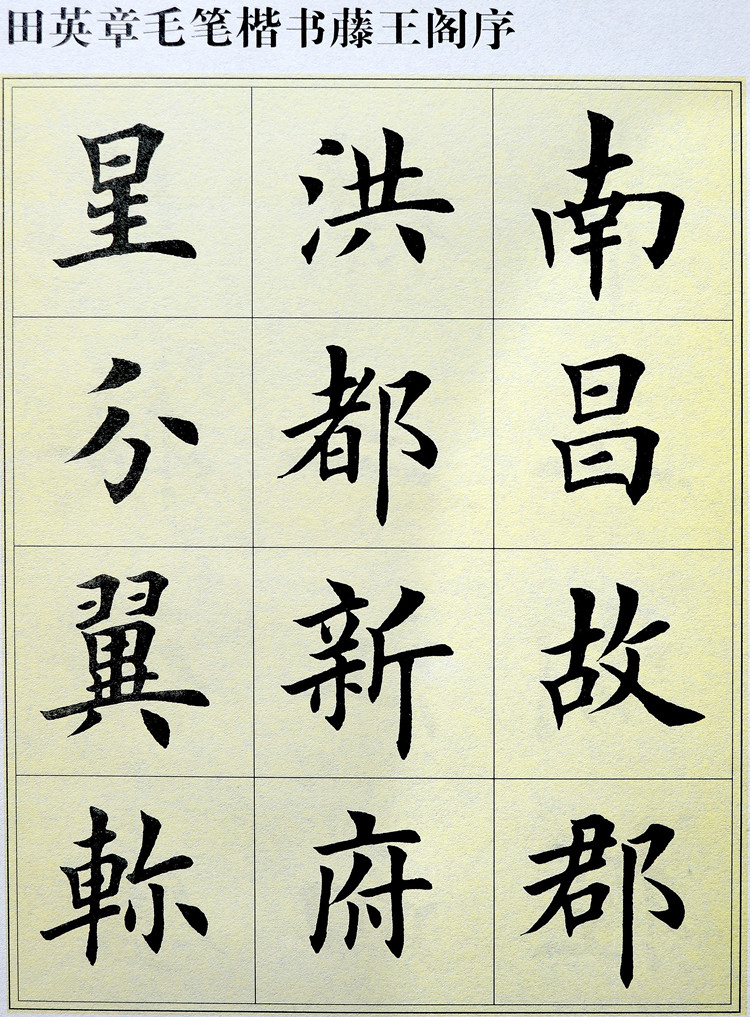 田英章毛笔楷书藤王阁序
南昌故郡
洪都新府
星分翼軫